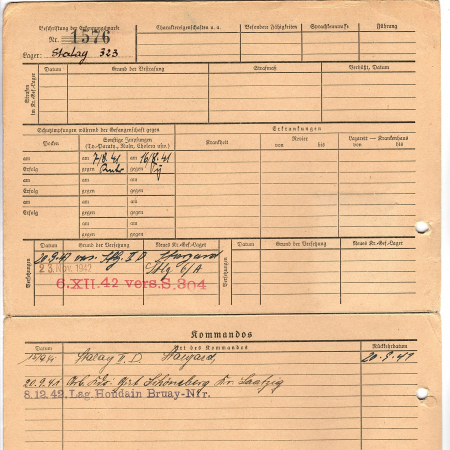 Beschriftung der Erkennungsmarke
Nr. 1576
Lager: Stalag 323
Charaktereigenschaften u. a.
Besondere Fähigkeiten
Sprachkenntnisse
Führung
Strafen im Kr.-Gef.-Lager
Datum
Grund der Bestrafung
Strafmaß
Verbüßt, Datum
Schutzimpfungen während der Gefangenschaft gegen
Erkrankungen
Pocken
Sonstige Impfungen
(Ty.-Paraty., Ruhr, Cholera usw.)
Krankheit
Revier
von bis
Lazarett — Krankenhaus
von bis
am am 7/8.41 am 16/8.41
Erfolg gegen Ruhr gegen Ty
am am am
Erfolg gegen gegen
am am am
Erfolg gegen gegen
am am
gegen gegen
am am
gegen gegen
Versetzungen
Datum
Grund der Versetzung
Neues Kr.-Gef.-Lager
20.9.42 vers. Stlg. II D. Stargard
23. Nov. 1942 Stlg 6/A
6. XII. 42 vers. S. 304
Versetzungen
Datum
Grund der Versetzung
Neues Kr.-Gef.-Lager
Kommandos
Datum
Art des Kommandos
Rückkehrdatum
Stalag II. D. Stargard, 20-9-41
20.9.41 Arb. Kdo. Schöneberg Kr. Saatzig
8.12.42. Lag. Houdain Bruay-Nfr.